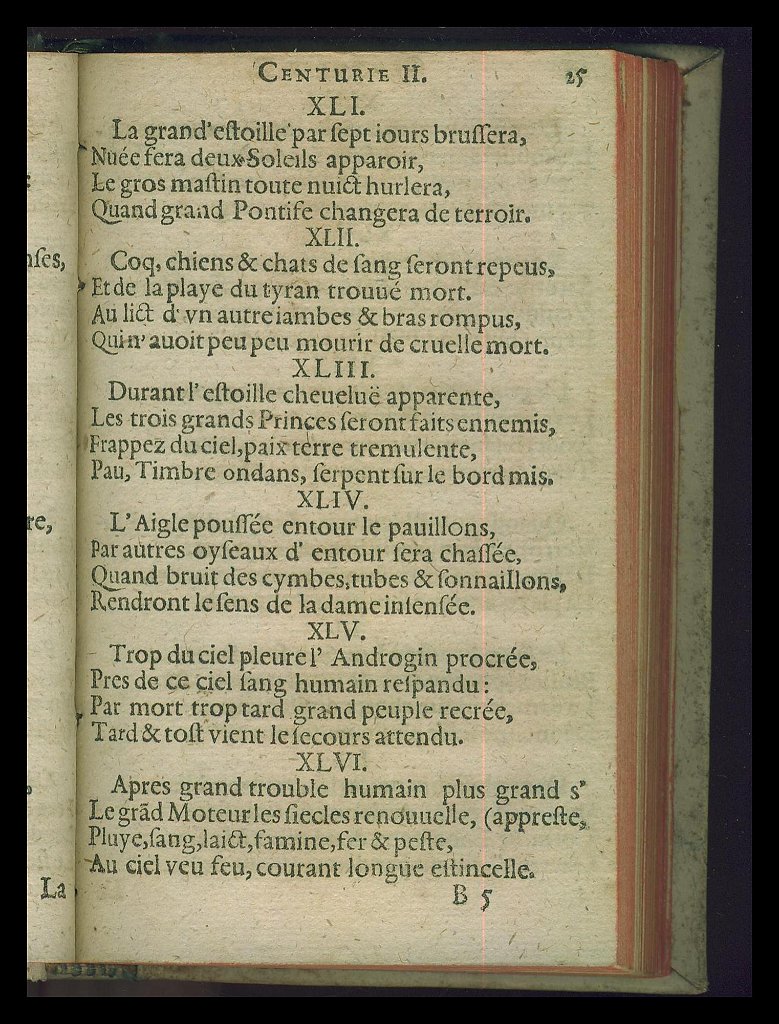 nſes,
re,
La
CENTURIE II. 25
XLI.
La grand'eſtoille par ſept iours bruſſera,
Nuée fera deux Soleils apparoir,
Le gros maſtin toute nuict hurlera,
Quand grand Pontife changera de terroir.
XLII.
Coq, chiens & chats de ſang ſeront repeus,
Et de la playe du tyran trouué mort.
Au lict d'vn autre iambes & bras rompus,
Qui n'auoit peu peu mourir de cruelle mort.
XLIII.
Durant l'eſtoille cheueluë apparente,
Les trois grands Princes ſeront faits ennemis,
Frappez du ciel, paix terre tremulente,
Pau, Timbre ondans, ſerpent ſur le bord mis.
XLIV.
L'Aigle pouſſée entour le pauillons,
Par autres oyſeaux d'entour ſera chaſſée,
Quand bruit des cymbes, tubes & ſonnaillons,
Rendront le ſens de la dame inſenſée.
XLV.
Trop du ciel pleure l'Androgin procrée,
Pres de ce ciel ſang humain reſpandu:
Par mort trop tard grand peuple recrée,
Tard & toſt vient le ſecours attendu.
XLVI.
Apres grand trouble humain plus grand s'
Le grãd Moteur les ſiecles renouuelle, (appreſte,
Pluye, ſang, laict, famine, fer & peſte,
Au ciel veu feu, courant longue eſtincelle.
B 5